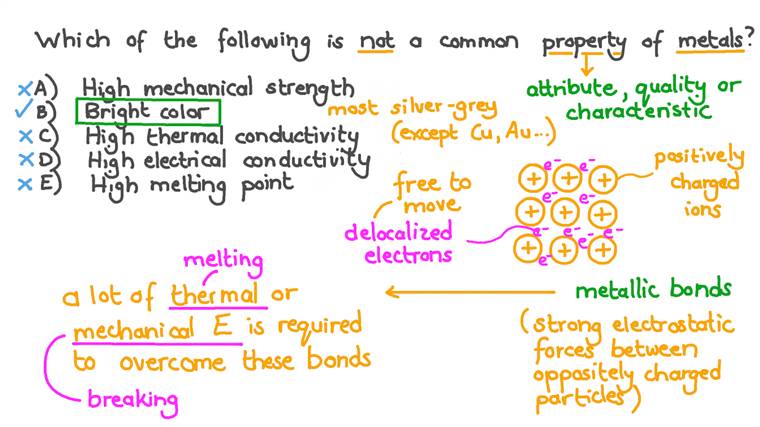 Which of the following is not a common property of metals?
A) High mechanical strength
B) Bright color
C) High thermal conductivity
D) High electrical conductivity
E) High melting point
attribute, quality or
characteristic
most silver-grey
(except Cu, Au...)
free to
move
delocalized
electrons
e⁻ e⁻
+ + +
e⁻ e⁻
+ + +
e⁻ e⁻ e⁻
+ + +
e⁻
positively
charged
ions
metallic bonds
(strong electrostatic
forces between
oppositely charged
particles)
melting
a lot of thermal or
mechanical E is required
to overcome these bonds
breaking